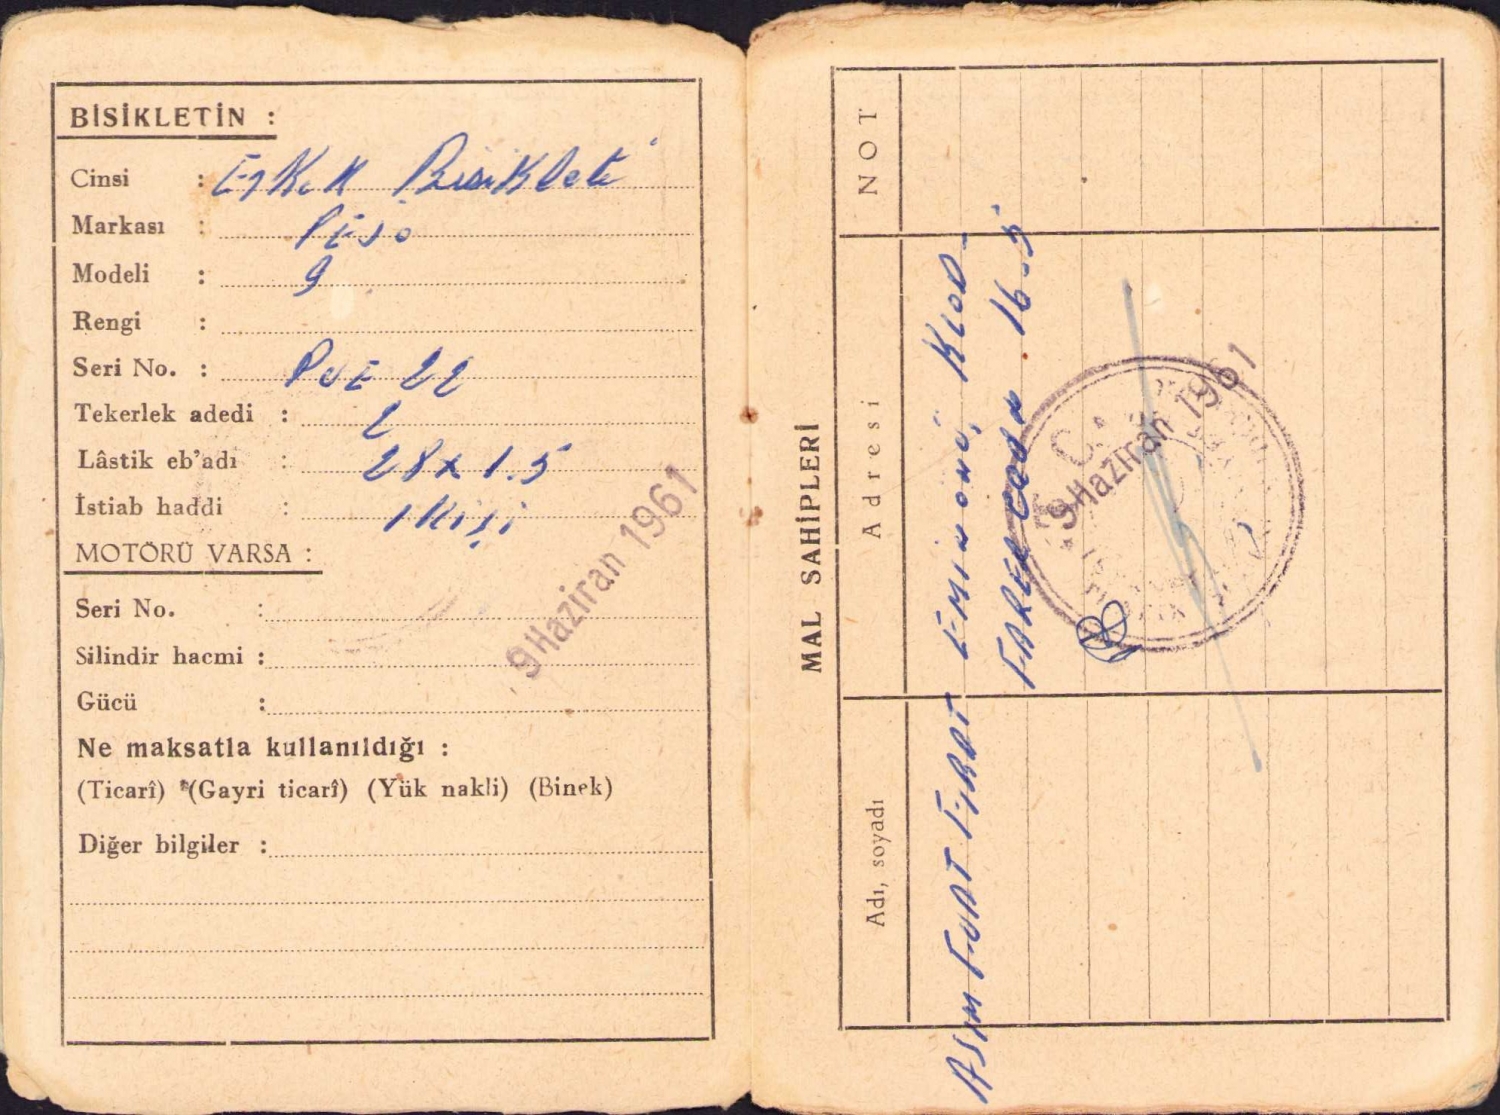 BİSİKLETİN :
Cinsi : Erkek Bisikleti
Markası : PEJO
Modeli : 9
Rengi :
Seri No. : PJE 22
Tekerlek adedi : 2
Lâstik eb'adı : 28 x 1.5
İstiab haddi : 1 Kişi
MOTÖRÜ VARSA :
Seri No. :
Silindir hacmi :
Gücü :
9 Haziran 1961
Ne maksatla kullanıldığı :
(Ticarî) (Gayri ticarî) (Yük nakli) (Binek)
Diğer bilgiler :
MAL SAHİPLERİ
Adı, soyadı
Adresi
NOT
ASIM FUAT FIRAT
EMİNÖNÜ,
16-5
T. C.
9 Haziran 1961